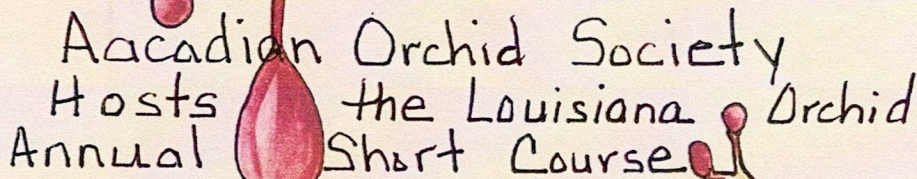 Aacadian Orchid Society
Hosts the Louisiana Orchid
Annual Short Course